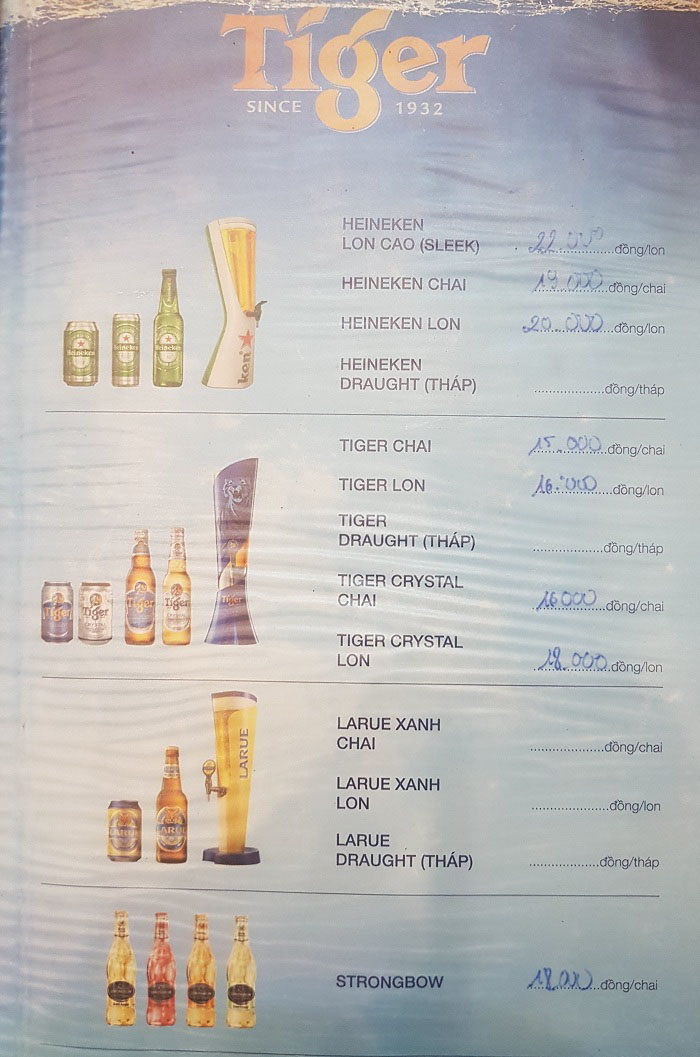 Tiger
SINCE 1932
HEINEKEN
LON CAO (SLEEK) 22.000 đồng/lon
HEINEKEN CHAI 19.000 đồng/chai
HEINEKEN LON 20.000 đồng/lon
HEINEKEN
DRAUGHT (THÁP) ..................đồng/tháp
TIGER CHAI 15.000 đồng/chai
TIGER LON 16.000 đồng/lon
TIGER
DRAUGHT (THÁP) ..................đồng/tháp
TIGER CRYSTAL
CHAI 16000 đồng/chai
TIGER CRYSTAL
LON 18.000 đồng/lon
LARUE XANH
CHAI ...................đồng/chai
LARUE XANH
LON ....................đồng/lon
LARUE
DRAUGHT (THÁP) ..................đồng/tháp
STRONGBOW 18.000 đồng/chai
Heineken
Heineken
Heineken
ken
Tiger
Tiger
Tiger
Tiger
LARUE
LARUE
LARUE